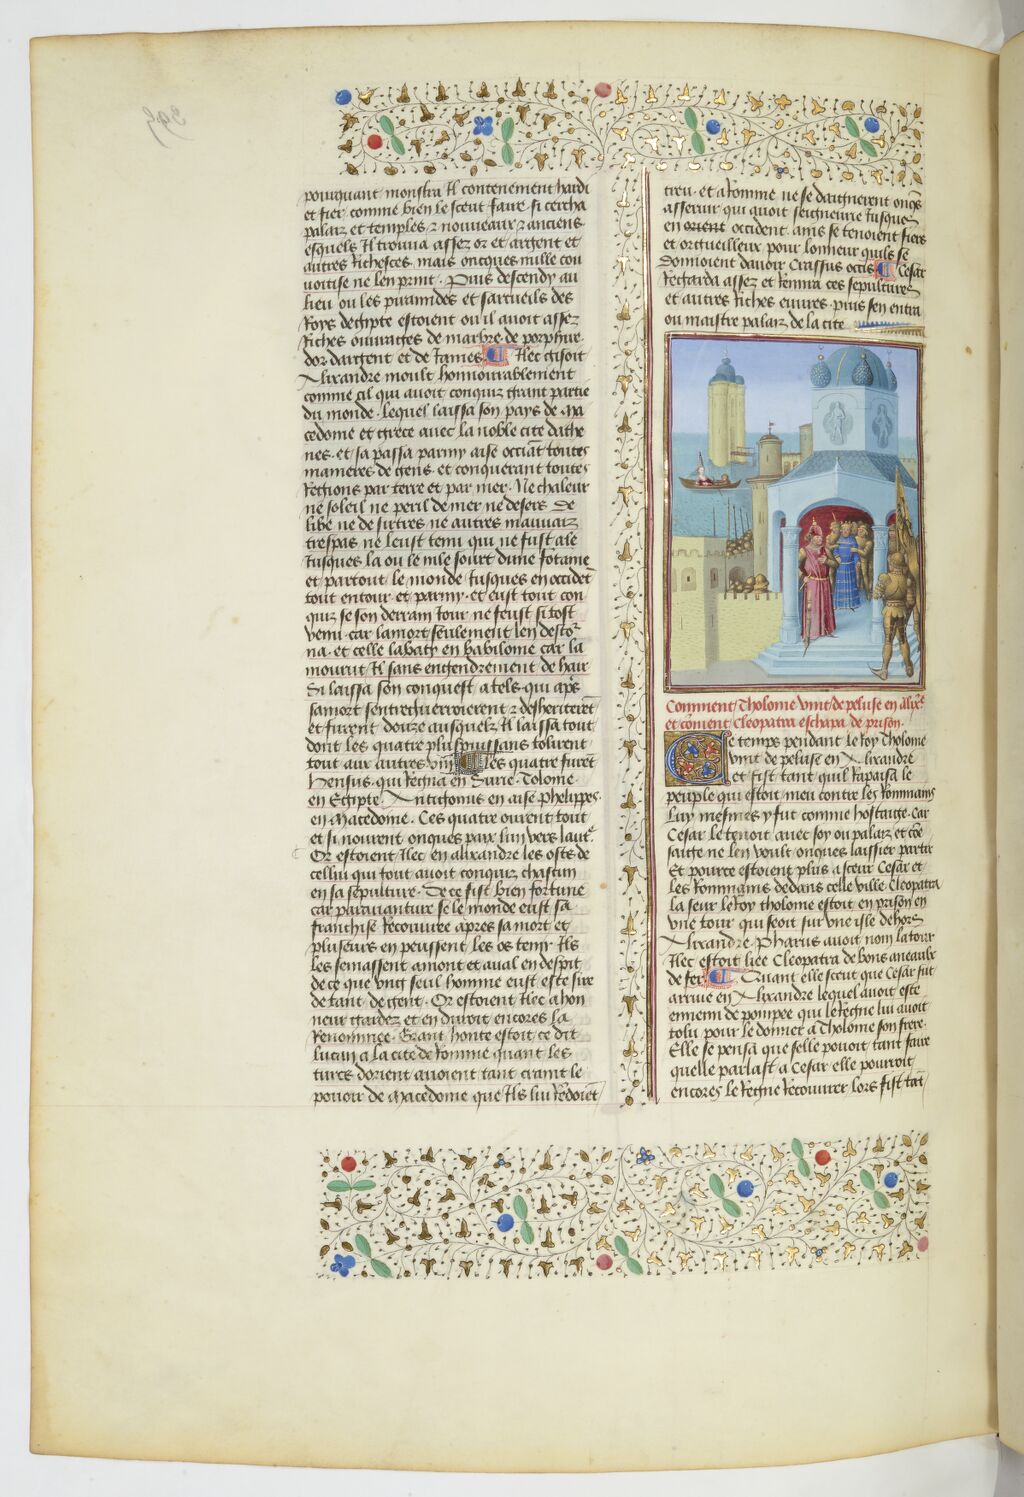 pourquant monstra Il contenement hardi
et fier comme bien le sceut faire. si cercha
palaiz et temples ⁊ nouueaux ⁊ anciens.
esquels Il trouua assez or et argent et
autres Richesces. mais oncques nulle cou
uoitise ne len print. Puis descendy au
lieu ou les piramides et sarcueils des
Roys degipte estoient ou il auoit assez
Riches ouuraiges de marbre. de porphire.
dor dargent et de Iames. Ilec gisoit
Alixandre moult honnourablement
comme cil qui auoit conquiz grant partie
du monde. lequel laissa son pays de Ma
cedome et grece auec la noble cite dathe
nes. et sa passa parmy aise occiant toutes
manieres de gens. et conquerant toutes
Regions par terre et par mer. Ne chaleur
ne soleil ne peril de mer ne desers de
libe ne de sirtres ne autres mauuaiz
trespas ne leust tenu qui ne fust ale
Iusques la ou le nile sourt dune fontaine
et partout le monde Iusques en occident
tout entour et parmy. et eust tout con
quiz se son derrain Iour ne feust si tost
venu. car la mort seulement len destor
na. et celle labaty en babilonie car la
mourut Il sans engendrement de hair
Si laissa son conquest a tels qui aps
sa mort sentreguerroierent ⁊ desheriterent
et furent douze ausquelz Il laissa tout
dont les quatre plus puissans tolurent
tout aux autres viij les quatre furet
en Egipte. Antigonus en aise phelippes.
en Macedome. Ces quatre ourent tout
et si nourent onques paix lun vers laut
Or estoient Ilec en alixandre les osts de
cellui qui tout auoit conquiz chascun
en sa sepulture. De ce fist bien fortune
car parauanture se le monde eust sa
franchise Recouuree apres sa mort et
plusieurs en peussent les os tenir Ils
les semassent amont et aual en despit
de ce que vng seul homme eust este sire
de tant de gent. Or estoient Ilec a hon
neur gardez et en duroit encores la
Renommee. Grant honte estoit ce dit
lucan a la cite de Romme quant les
turcs dorient auoient tant craint le
pouoir de Macedome que Ils lui Redoient
treu. et a Romme ne se daignerent onqs
asseruir qui auoit seigneurie Iusques
en orient occident. ains se tenoient fiers
et orgueilleux pour lonneur quils se
donnoient dauoir Crassus occis Cesar
Regarda assez et Remira ces sepultures
et autres riches euures. puis sen entra
ou maistre palaiz de la cite
Comment Tholome vint de peluse en alixe
et coment Cleopatra eschapa de prison.
Ce temps pendant le Roy Tholome
vint de peluse en Alixandre
et fist tant quil Rapaisa le
peuple qui estoit meu contre les Rommains
Luy mesmes y fut comme hostaige. Car
Cesar le tenoit auec soy ou palaiz et coe
saige ne len voult onques laissier partir
Et pource estoient plus a sceur Cesar et
les Rommains dedans celle ville Cleopatra
la seur le Roy tholome estoit en prison en
vne tour qui seoit sur vne isle dehors
Alixandre Pharus auoit nom la tour
Ilec estoit liee Cleopatra de bons aneaulx
de fer. Quant elle sceut que Cesar fut
arriue en Alixandre lequel auoit este
ennemi de pompee qui le Regne lui auoit
tolu pour le donner a Tholome son frere.
Elle se pensa que selle pouoit tant faire
quelle parlast a Cesar elle pourroit
encores le Regne Recouurer lors fist tat